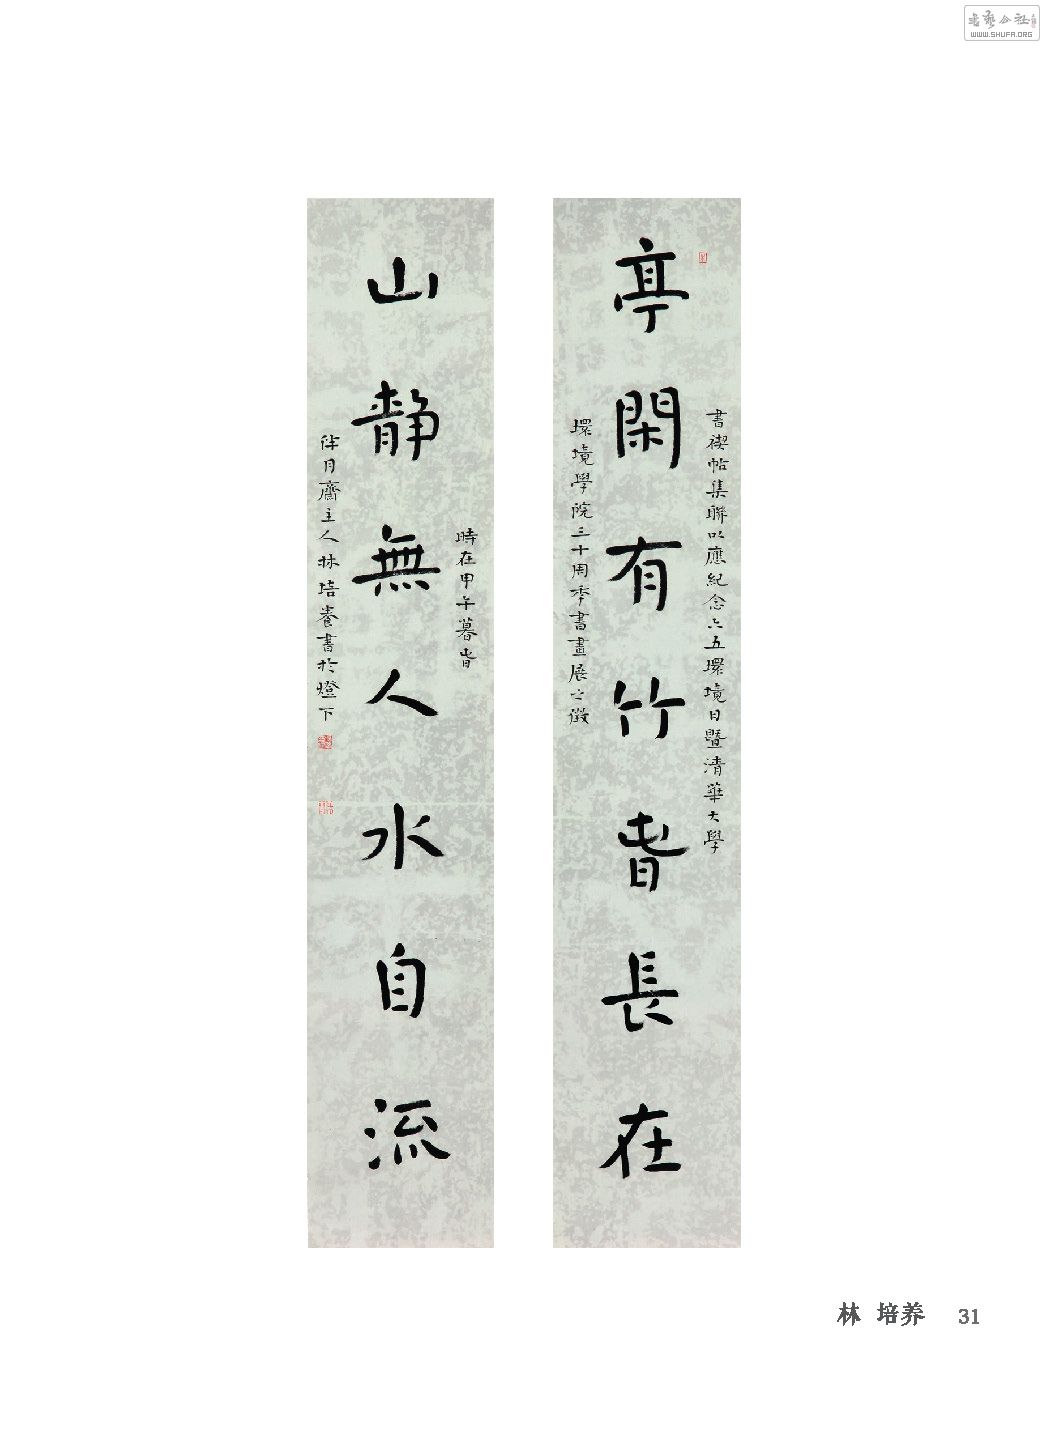 書艺公社
WWW.SHUFA.ORG
亭閑有竹春長在
書禊帖集聯以應紀念六五環境日暨清華大學
環境學院三十周季書畫展之徵
山靜無人水自流
時在甲午暮春
伴月齋主人林培養書於燈下
林 培养 31